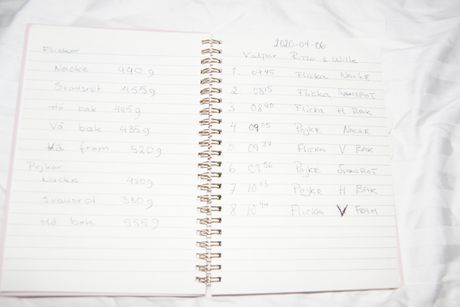 Flickor
Nacke 490 g
Svansrot 455 g
Hö bak 485 g
Vä bak 435 g
Vä fram 520 g
Pojkar
Nacke
Svansrot
Hö bak 555 g
2020-04-06
Valpar Rizzo & Wille
1. 0745 Flicka Nacke
2. 0815 Flicka Svansrot
3 0840 Flicka H Bak
4 0905 Pojke Nacke
5 0937 Flicka V Bak
6 0956 Pojke Svansrot
7 Pojke H Bak
8 Flicka V Fram